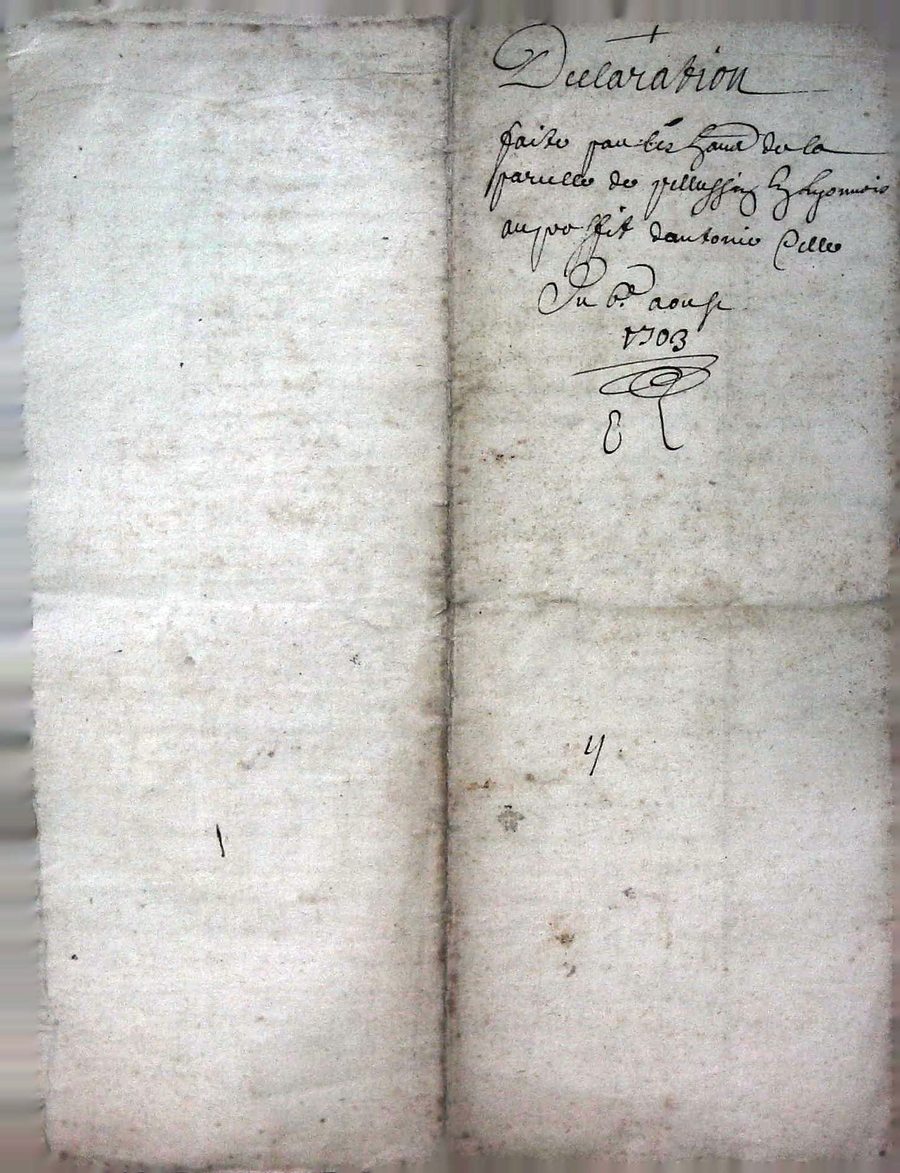 Declaration
faite par les hants de la
paroisse de pellussin en Lyonnois
au proffit dantoine Pelle
Du 6e aoust
1703
4
1